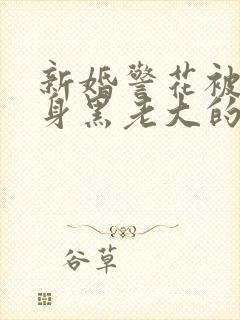 新婚警花被
身黑老大的
谷草